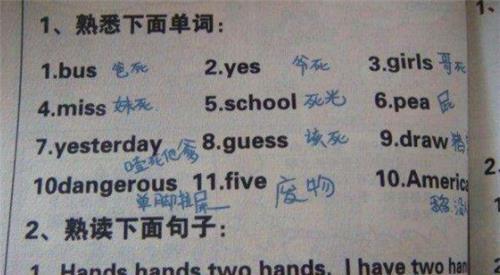 1、熟悉下面单词:
1.bus 爸死 2.yes 爷死 3.girls 哥死
4.miss 妹死 5.school 死光 6.pea 屁
7.yesterday 噎死他爹 8.guess 该死 9.draw
10dangerous 单脚拉屎 11.five 废物 10.America
2、熟读下面句子:
1. Hands hands two hands. I have two han